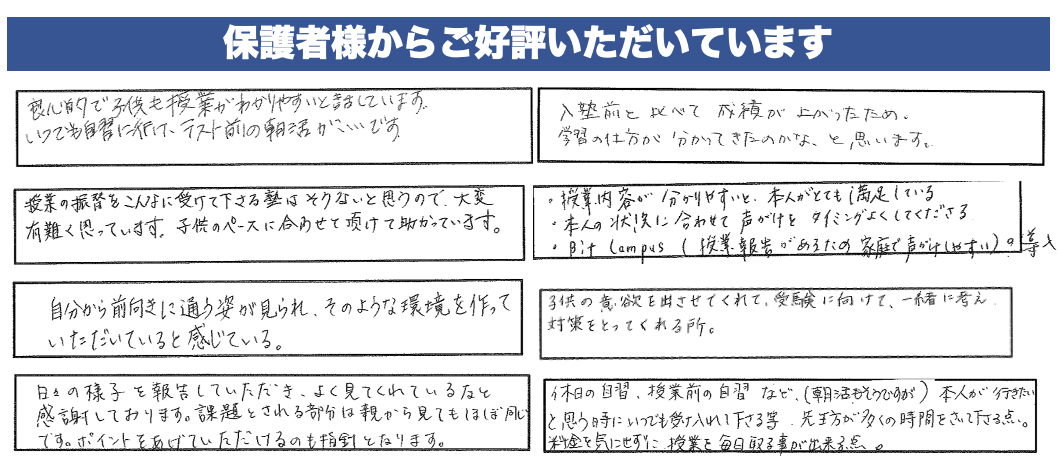 保護者様からご好評いただいています
良心的で子供も授業がわかりやすいと話しています。
いつでも自習に行け、テスト前の朝活がいいです
入塾前と比べて成績が上がったため。
学習の仕方が分かってきたのかな、と思います。
授業の振替をこんなに受けて下さる塾はそうないと思うので、大変
有難く思っています。子供のペースに合わせて頂けて助かっています。
・授業内容が分かりやすいと、本人がとても満足している
・本人の状況に合わせて声がけをタイミングよくしてくださる
・Bit Campus（授業報告があるため家庭で声がけしやすい）の導入
自分から前向きに通う姿が見られ、そのような環境を作って
いただいていると感じている。
子供の意欲を出させてくれて、受験に向けて、一緒に考え
対策をとってくれる所。
日々の様子を報告していただき、よく見てくれているなと
感謝しております。課題とされる部分は親から見てもほぼ同じ
です。ポイントをあげていただけるのも指針となります。
休日の自習、授業前の自習など、(朝活もそうですが）本人が行きたい
と思う時にいつでも受け入れて下さる事 先生方が多くの時間をさいて下さる点。
料金を気にせずに授業を毎日取る事が出来る点。